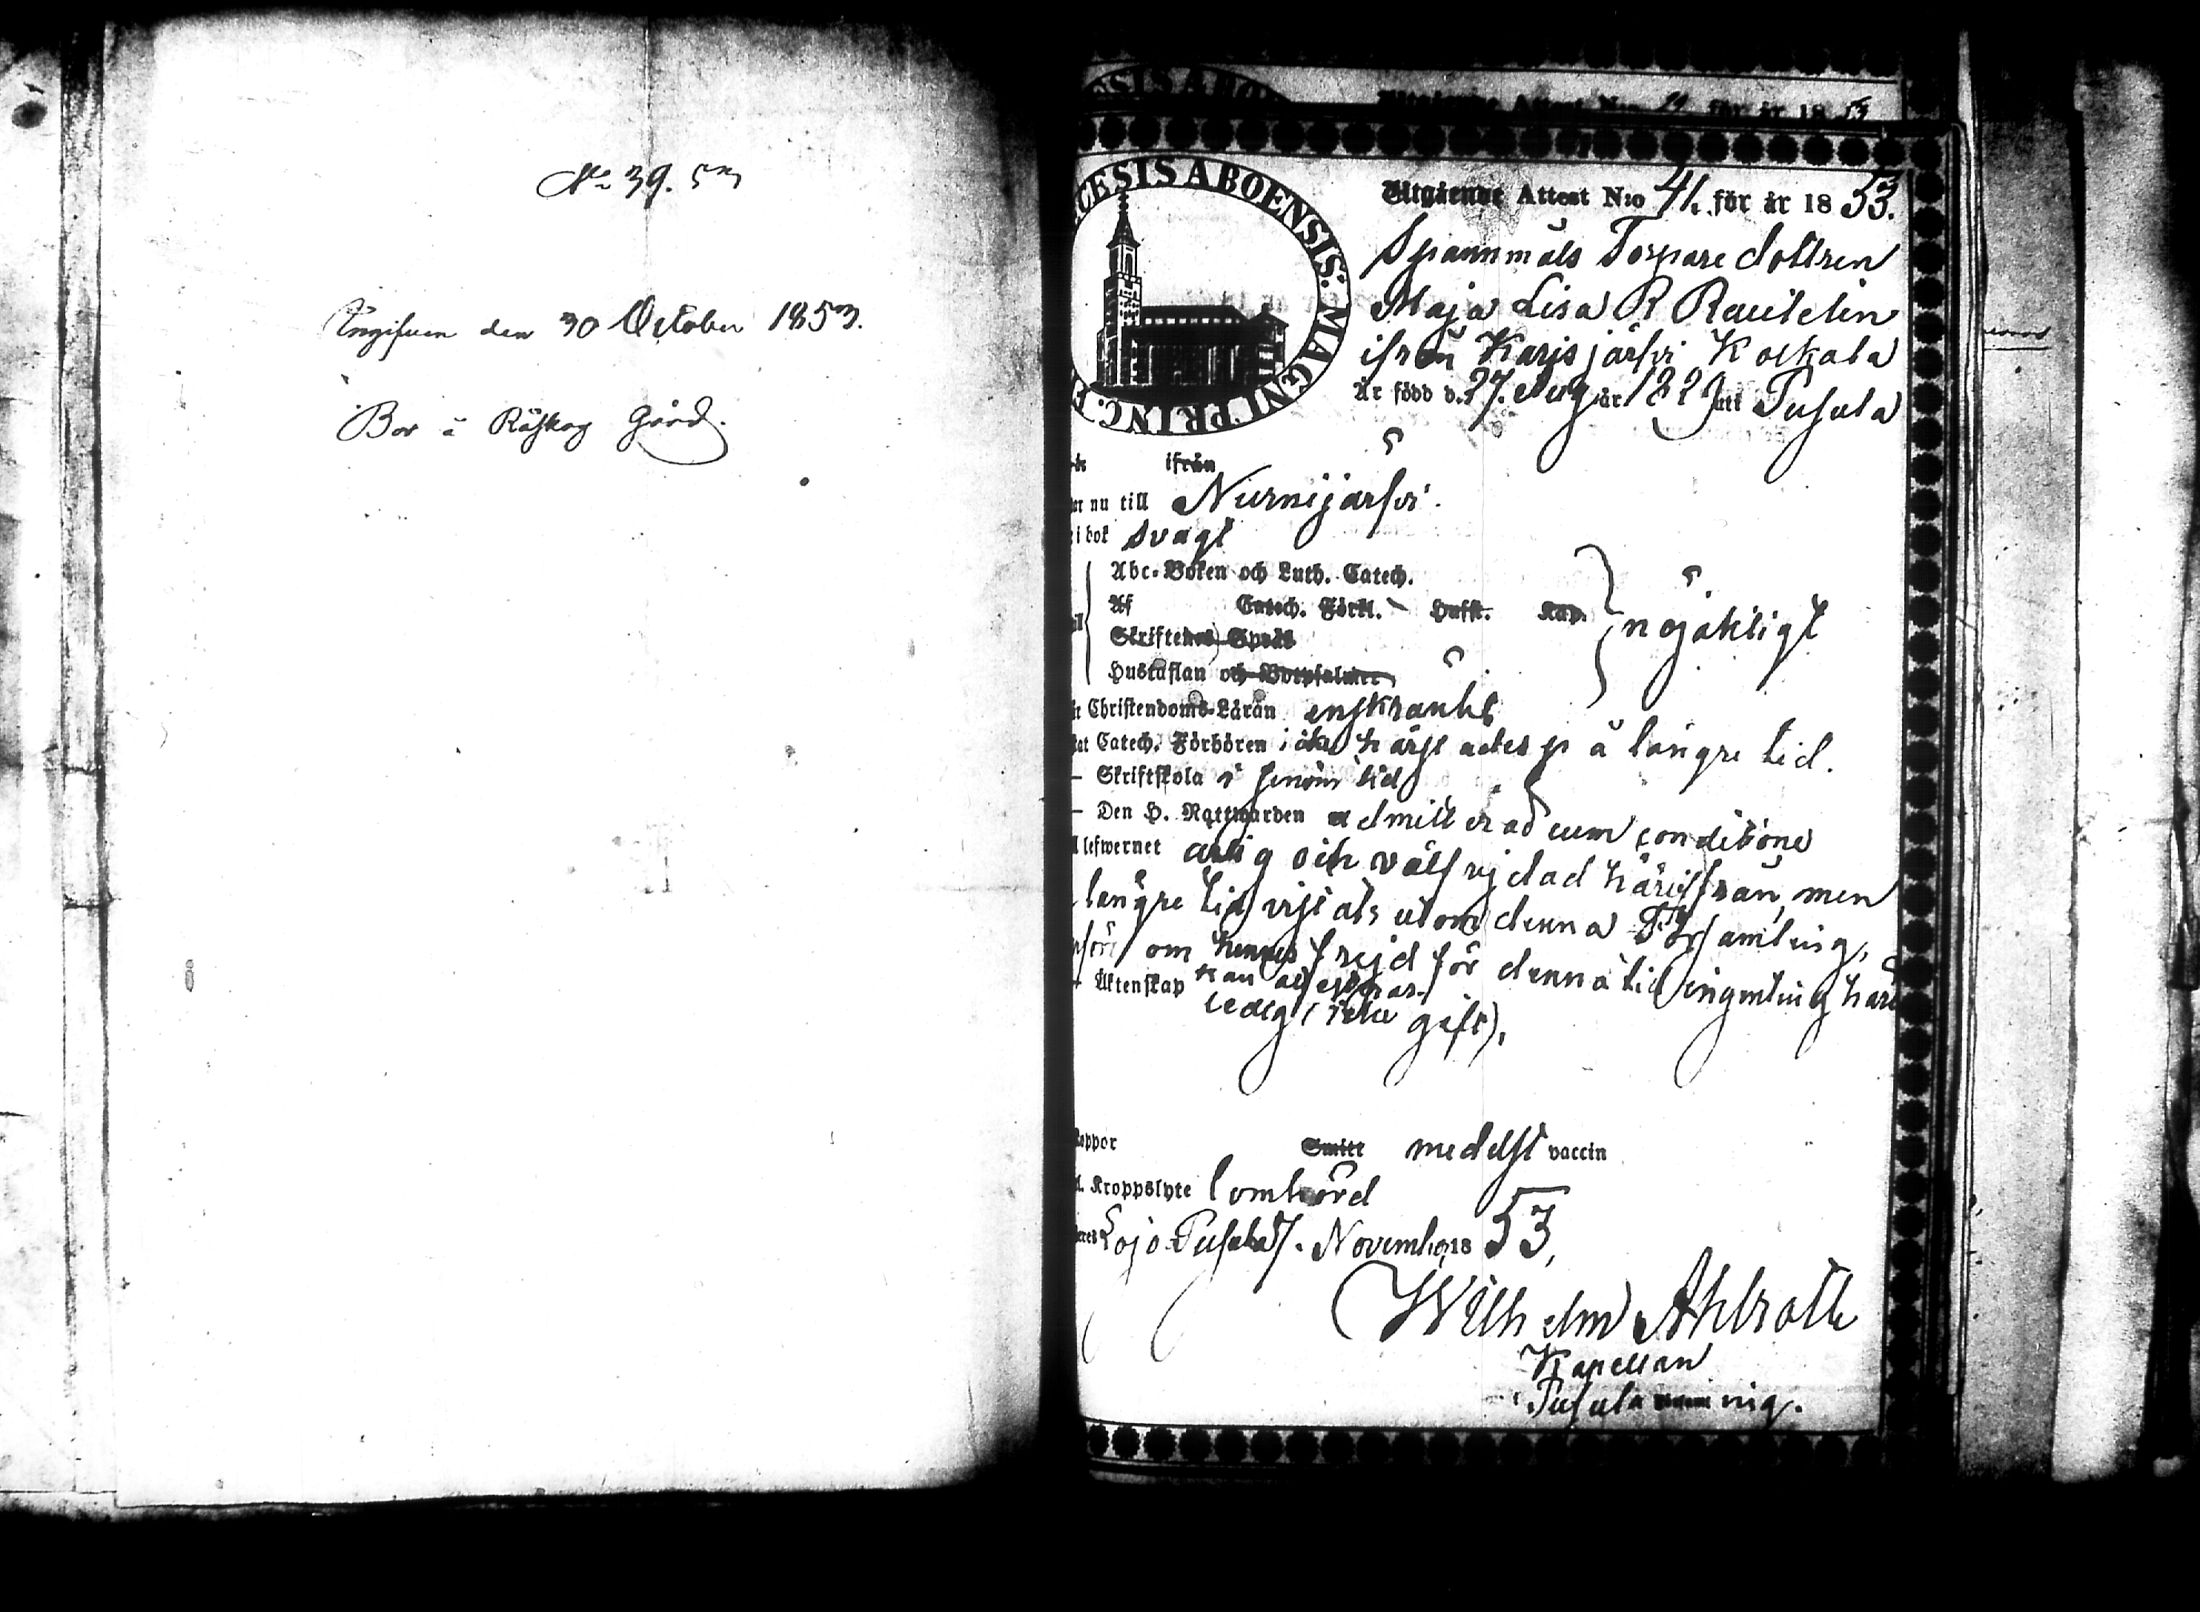 No 39. 53
Ingifven den 30 October 1853.
Bor å Råskog Gård.
CESIS ABOENSIS. MAGNI PRINC. F
Utgående Attest N:o 41. för år 1853.
Spannmåls Torpare dottren
Maja Lisa R Rautelin
ifrån Karisjärfvi Koikala
Är född d. 27. Aug år 1829 uti Pusula
ifrån
nu till Nurmijärfvi.
i bok svagt
Abc-Boken och Luth. Catech.
Af Catech. Förkl. Hufst. Kap. nöjaktigt
Skriftenes Språk
Hustaflan och Botpsalmer
Christendoms-Läran inskränkt
Catech. Förhören icke härstädes på längre tid.
— Skriftskola i sinom tid
— Den H. Nattwarden admitterad cum conditione
lefwernet ärlig och välfrejdad härifrån, men
längre tid vistats utom denna Församling,
om hennes frejd för denna tid ingenting
kan attesteras.
— Äktenskap ledig (icke gift).
koppor Smitt medelst vaccin
Kroppslyte lomhörd
Lojo Pusula d 7. November 1853,
Wilhelm Ahlroth
Kapellan
i Pusula